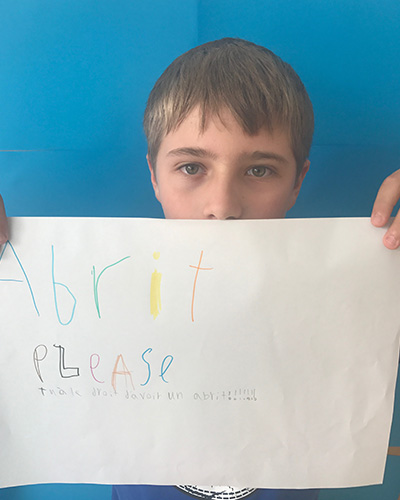 Abrit
PLEASe
on à le droit davoir un abrit!!!!!!